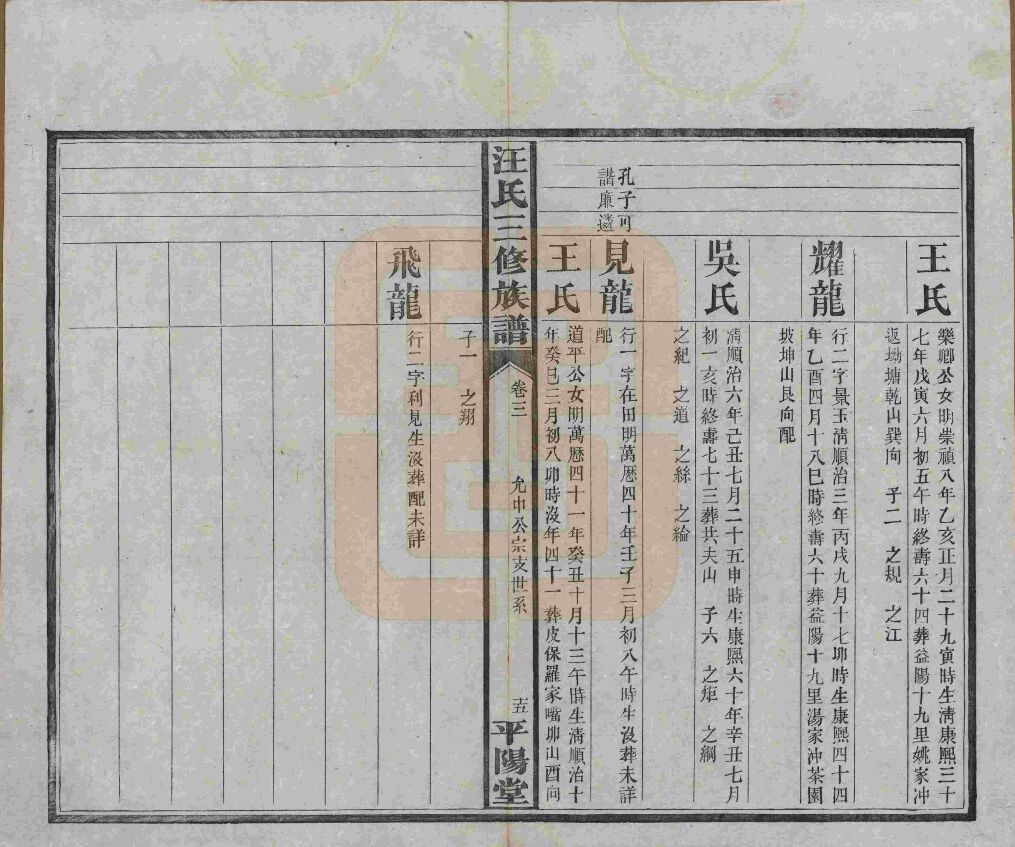 王氏
樂鄉公女明崇禎八年乙亥正月二十九寅時生淸康熙三十
七年戊寅六月初五午時終壽六十四葬益陽十九里姚家冲
返坳塘乾山巽向 子二 之規 之江
耀龍
行二字景玉淸順治三年丙戌九月十七卯時生康熙四十四
年乙酉四月十八巳時終壽六十葬益陽十九里湯家冲茶園
坡坤山艮向配
吳氏
淸順治六年己丑七月二十五申時生康熙六十年辛丑七月
初一亥時終壽七十三葬共夫山 子六 之矩 之綱
之紀 之道 之絲 之綸
孔子可
譜廉遴
見龍
行一字在田明萬曆四十年壬子三月初八午時生沒葬未詳
配
王氏
道平公女明萬曆四十一年癸丑十月十三午時生淸順治十
年癸巳三月初八卯時沒年四十一葬皮保羅家嘴卯山酉向
汪氏三修族譜
卷三
允中公宗支世系
十五
平陽堂
子一 之翔
飛龍
行二字利見生沒葬配未詳